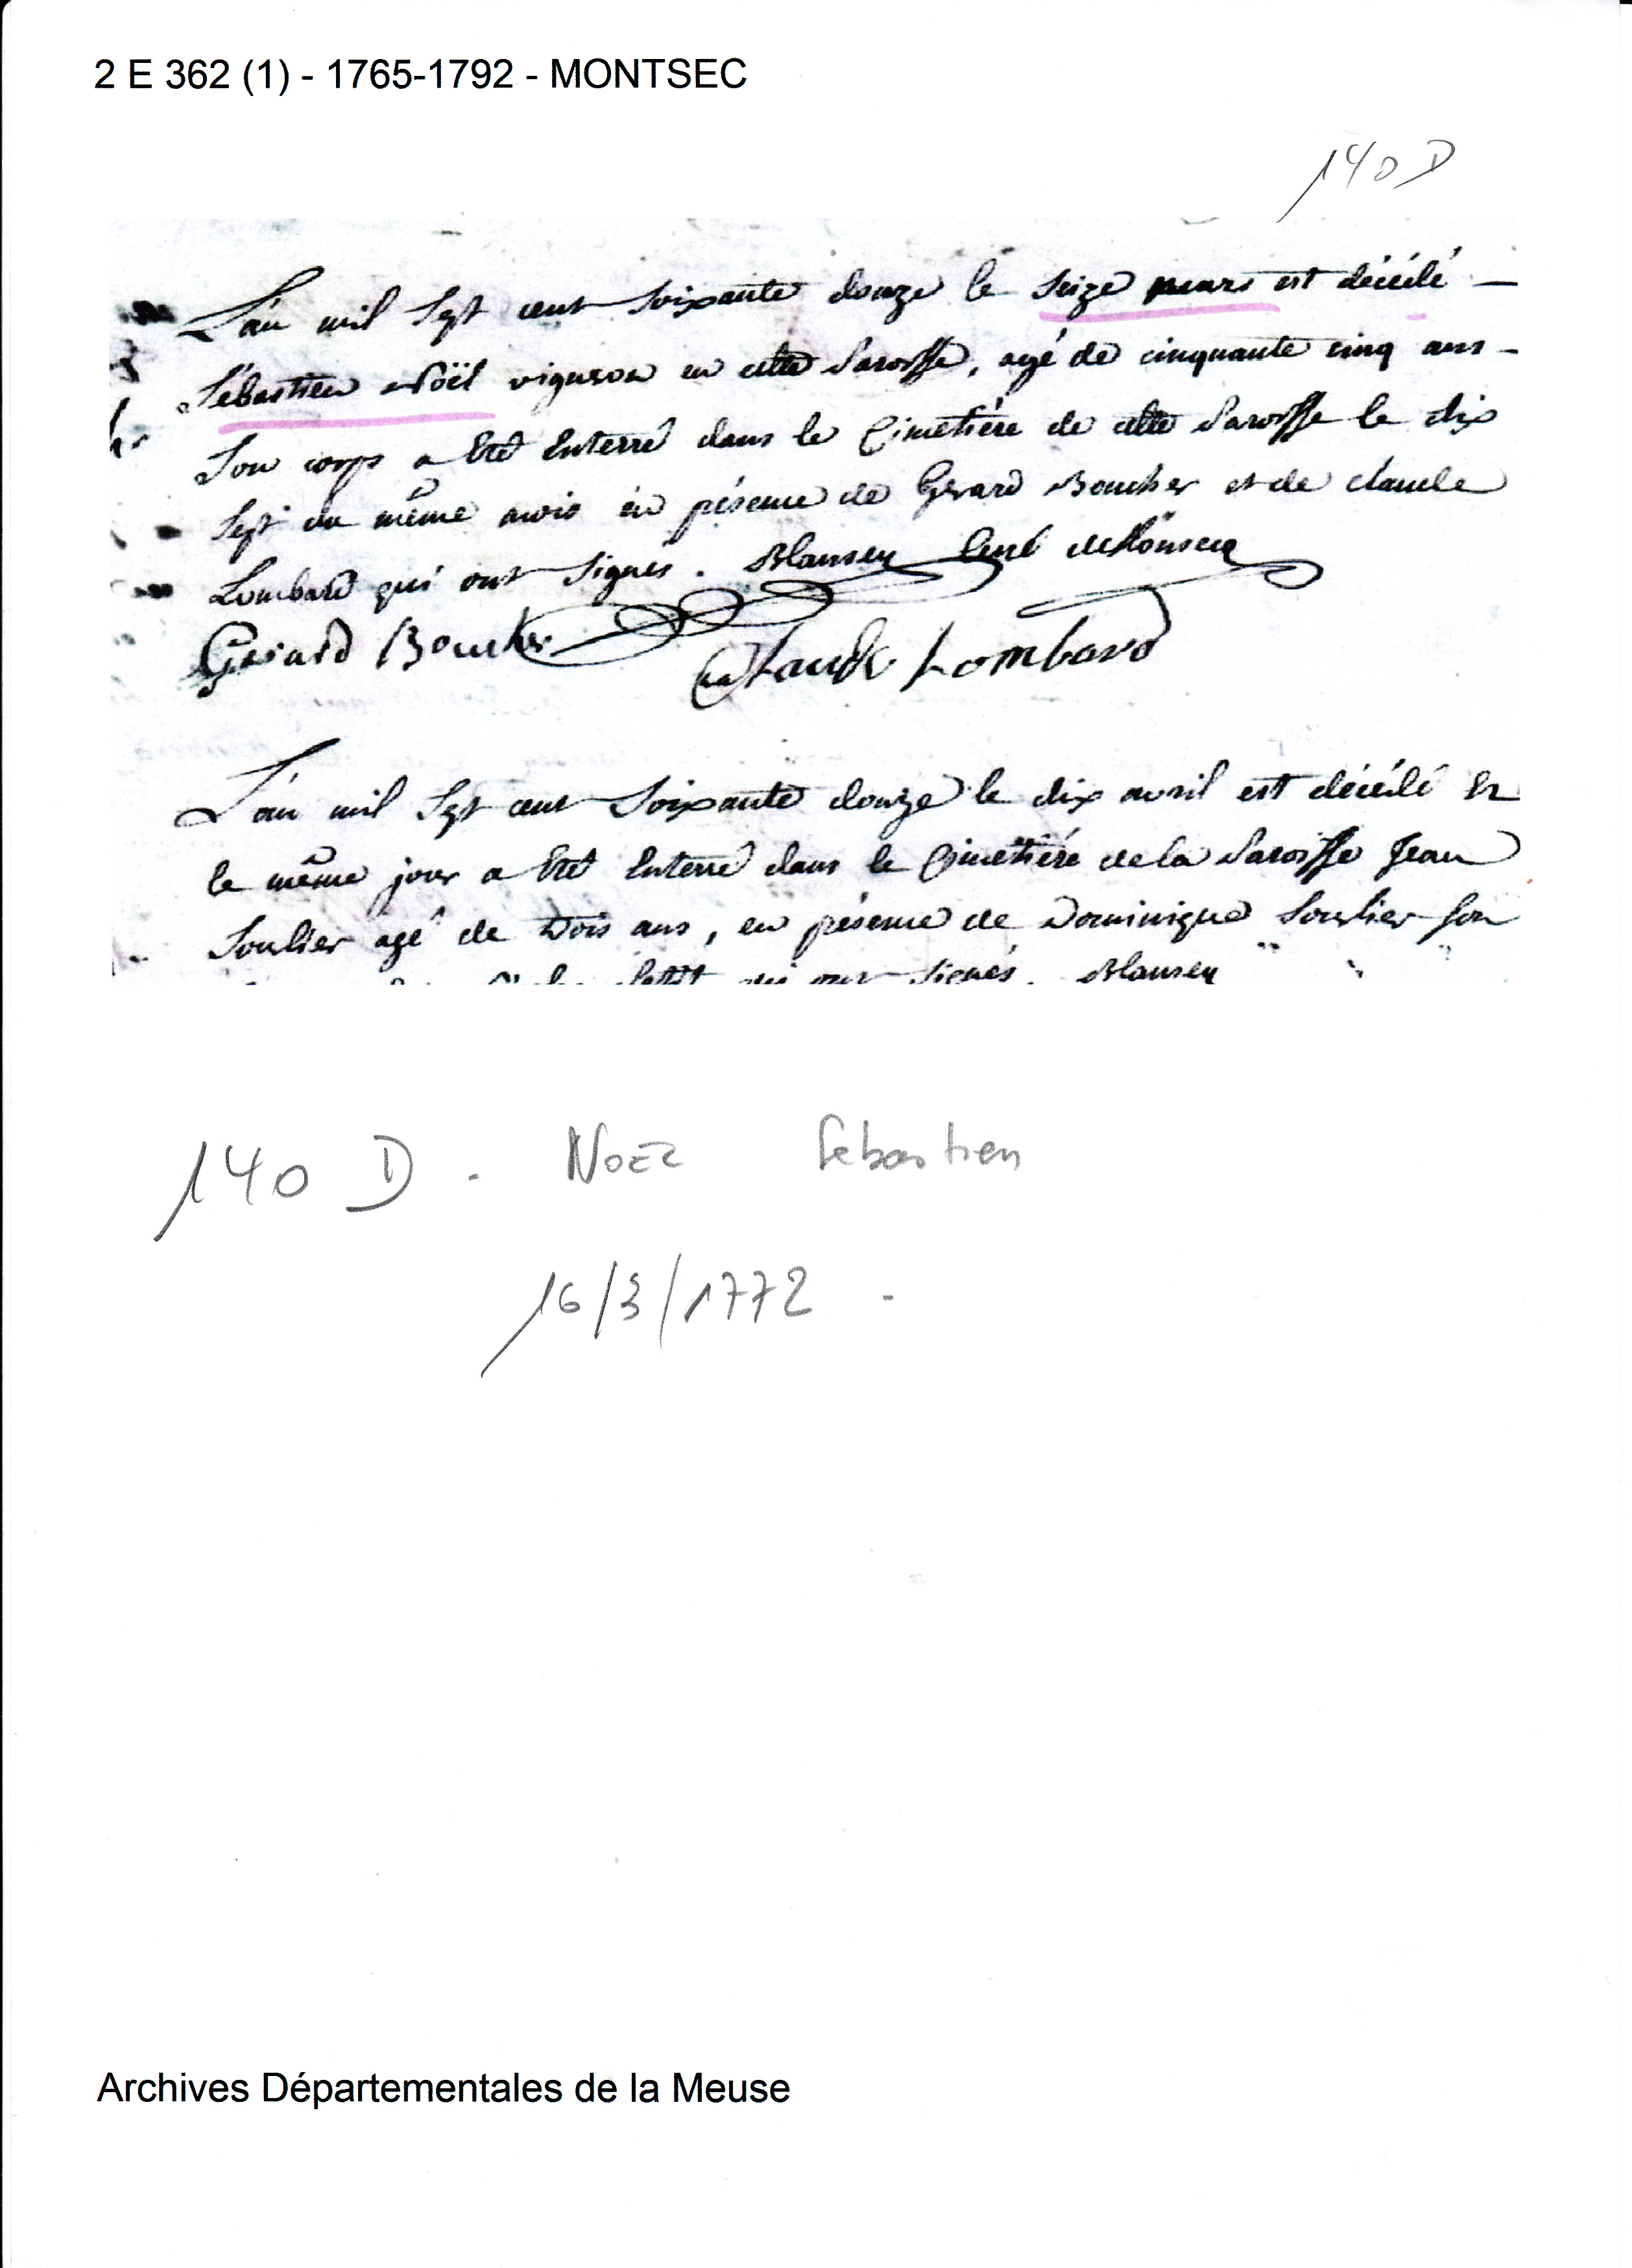 2 E 362 (1) - 1765-1792 - MONTSEC
140 D
L'an mil sept cent soixante douze le seize mars est décédé –
Sébastien Noël vigneron en cette Paroisse, agé de cinquante cinq ans –
Son corps a Eté Enterré dans le Cimetière de cette Paroisse le dix
sept du même mois en présence de Gerard Boucher et de claude
Lombard qui ont signés. Curé de Monsecq
Gerard Boucher
Claude Lombard
L'an mil sept cent soixante douze le dix avril est décédé Et
le même jour a Eté Enterré dans le Cimetière de la Paroisse Jean
Soulier agé de trois ans, en présence de Dominique Soulier son
qui ont signés.
140 D. NOËL Sebastien
16/3/1772 -
Archives Départementales de la Meuse